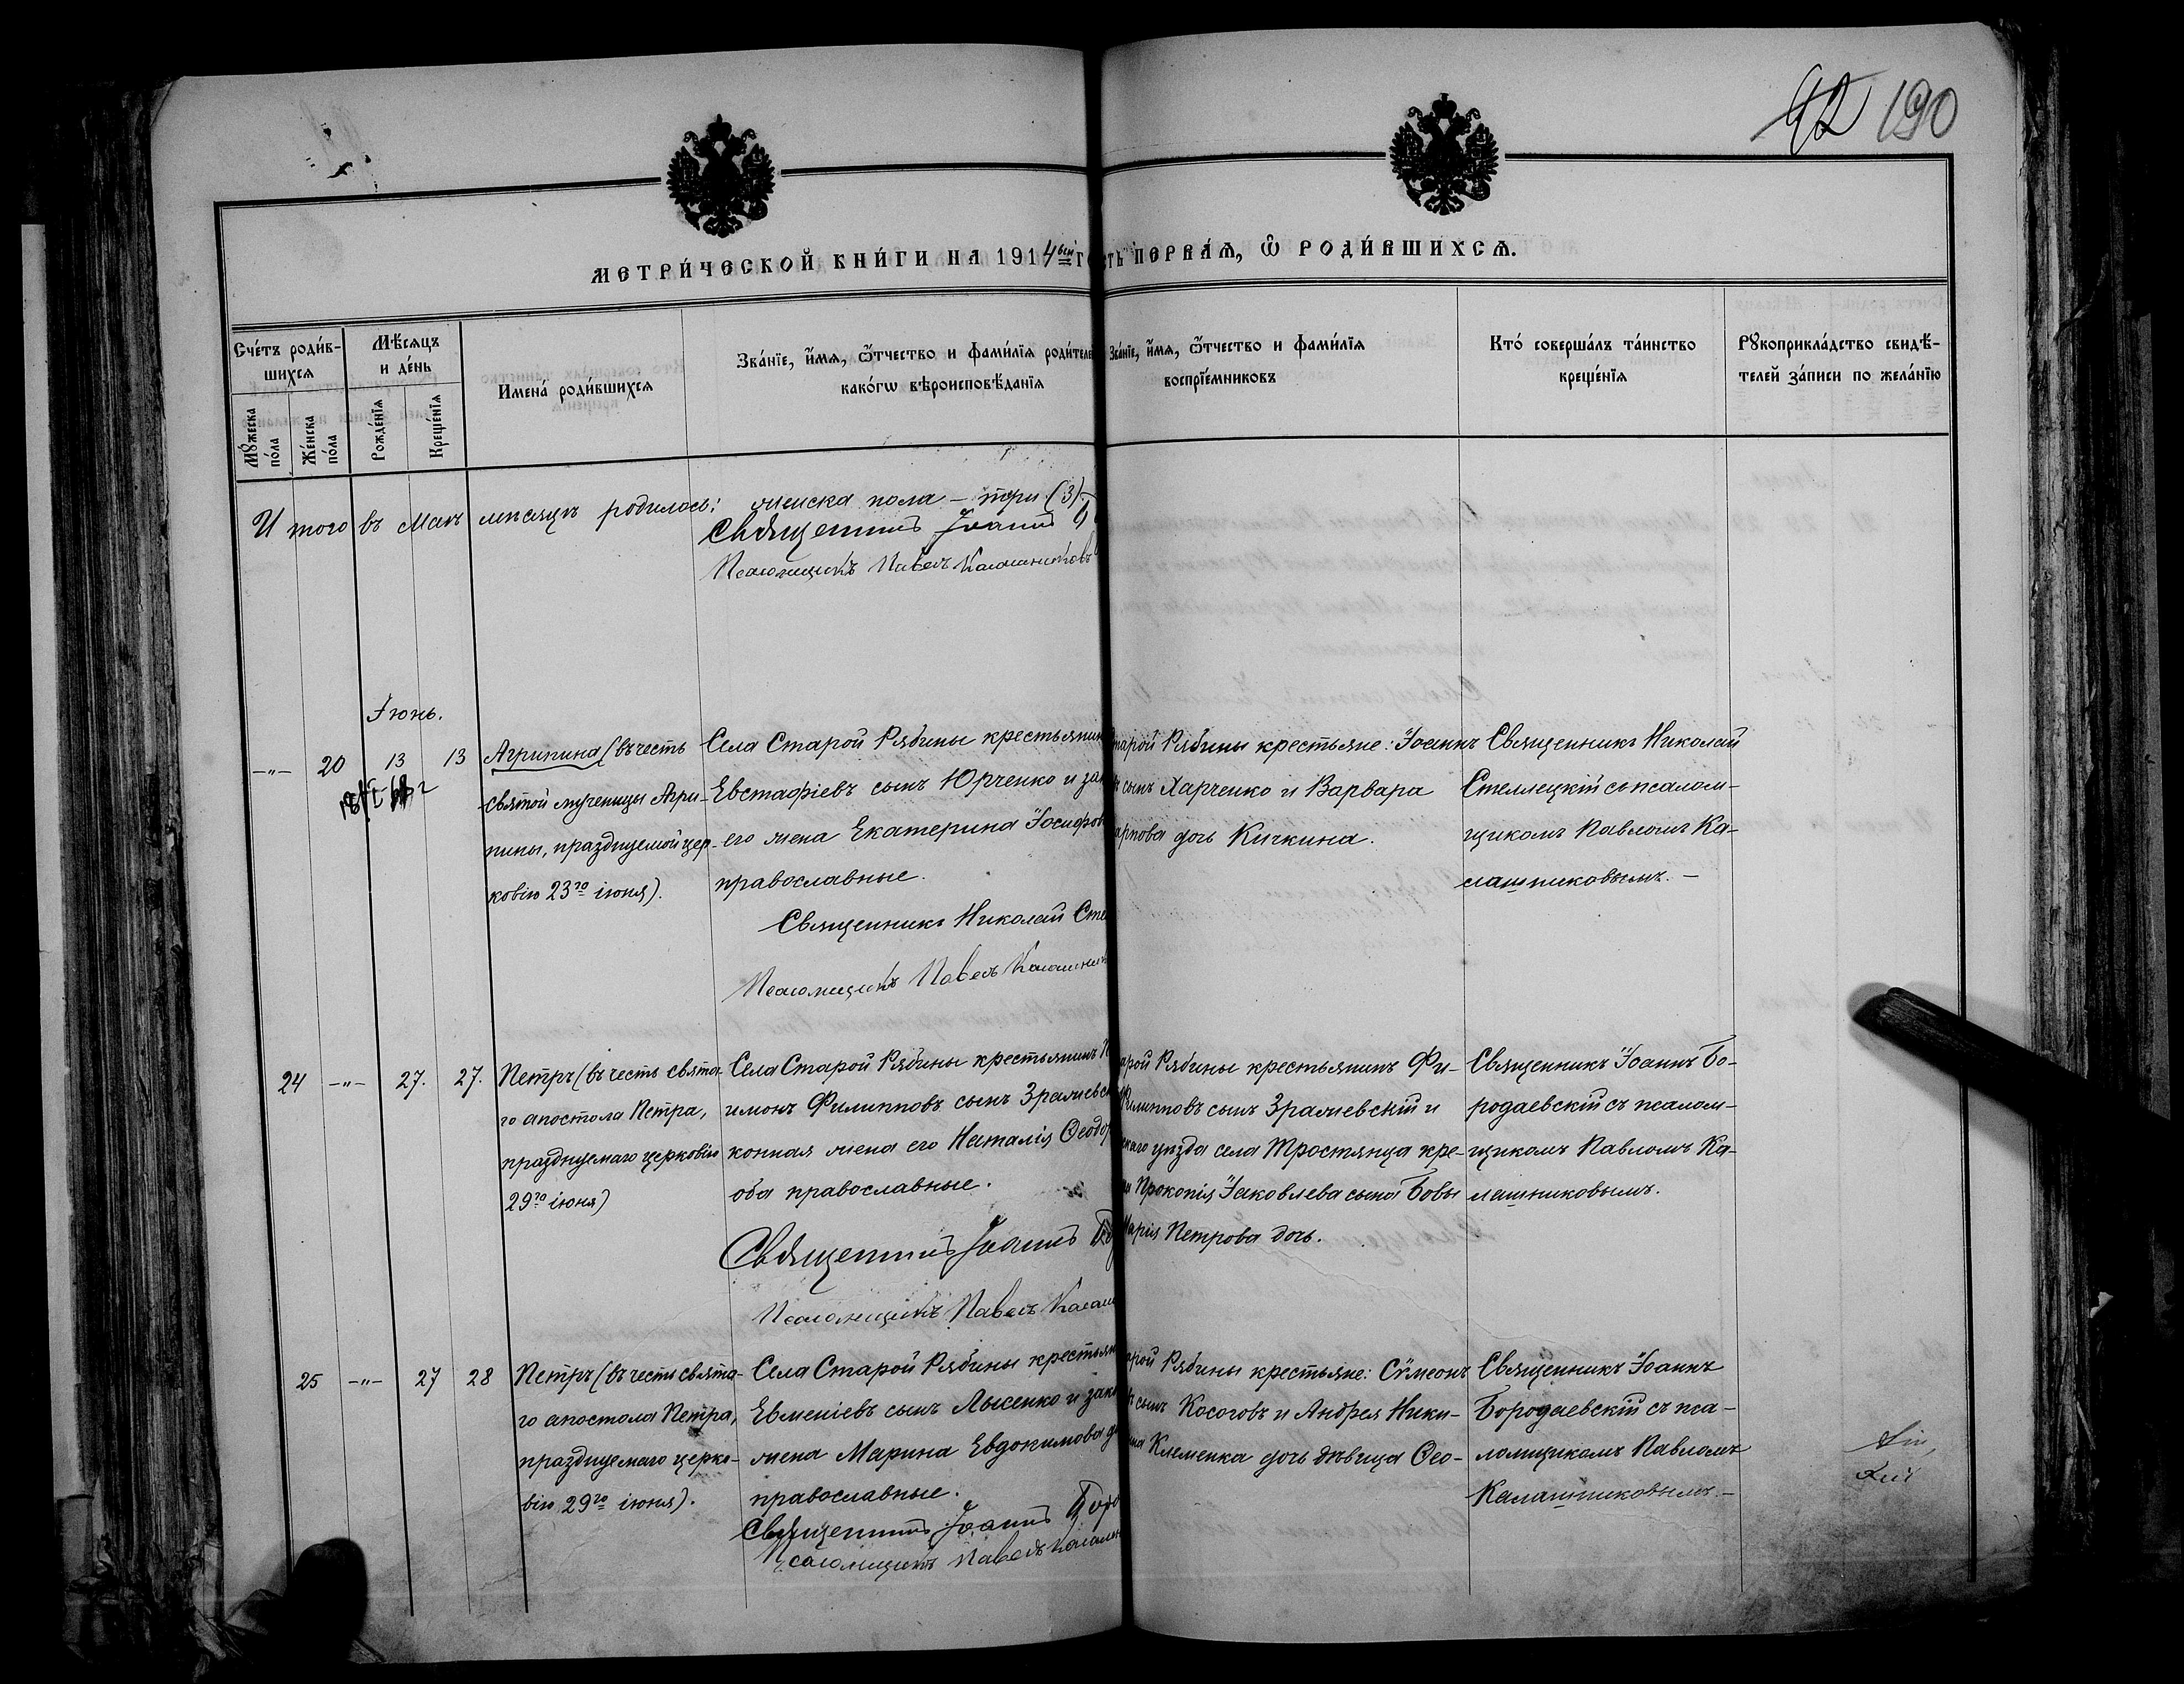 42 190
МЕТРИ́ЧЕСКОЙ КНИ́ГИ НА 1914 ПЕРВАѦ, Ѡ РОДИ́ВШИХСѦ.
Сче́тъ роди́в-
шихсѧ
Мѣ́сѧцъ
и де́нь
Мꙋ́жеска
по́ла
Же́нска
по́ла
Рожде́нїѧ
Креще́нїѧ
Имена́ роди́вшихсѧ
Зва́нїе, и́мѧ, ѻ́тчество и фами́лїѧ роди́теле
како́гѡ вѣроисповѣ́данїѧ
Зва́нїе, и́мѧ, ѻ́тчество и фами́лїѧ
воспрїе́мниковъ
Кто́ соверша́лъ та́инство
креще́нїѧ
Рꙋкоприкла́дство свидѣ́-
телей за́писи по жела́нїю
Итого въ маѣ мѣсяцѣ родилось: женска пола – три (3).
Священникъ Іоаннъ
Псаломщикъ Павелъ Калашниковъ
Іюнь.
–"– 20 13 13
Агрипина (въ честь
святой мученицы Агри-
пины, празднуемой цер-
ковію 23го іюня).
Села Старой Рябины крестьянин
Евстафіевъ сынъ Юрченко и зак
его жена Екатерина Іосифов
православные.
Священникъ Николай Сте
Псаломщикъ Павелъ Калашник
тарой Рябины крестьяне: Іоаннъ
ъ сынъ Харченко и Варвара
арпова дочь Кичкина.
Священникъ Николай
Стеллецкій съ псалом-
щикомъ Павломъ Ка-
лашниковымъ. –
24 –"– 27. 27.
Петръ (въ честь свята-
го апостола Петра,
празднуемаго церковію
29го іюня)
Села Старой Рябины крестьянинъ
имонъ Филипповъ сынъ Зражевск
конная жена его Наталія Ѳеодор
оба православные.
Священникъ Іоаннъ
Псаломщикъ Павелъ Калаш
арой Рябины крестьянинъ Фи-
Филипповъ сынъ Зражевскій и
скаго уѣзда села Тростянца кре-
Прокопія Іаковлева сына Бовы
Марія Петрова дочь.
Священникъ Іоаннъ Бо-
родаевскій съ псалом-
щикомъ Павломъ Ка-
лашниковымъ.
25 –"– 27 28
Петръ (въ честь свята-
го апостола Петра,
празднуемаго церко-
вію 29го іюня).
Села Старой Рябины крестьян
Евменіевъ сынъ Лысенко и зако
жена Марина Евдокимова до
православные.
Священникъ Іоаннъ Боро
Псаломщикъ Павелъ Калашн
арой Рябины крестьяне: Сѵмеонъ
ъ сынъ Косоговъ и Андрея Ники-
на Клеменка дочь дѣвица Ѳео-
Священникъ Іоаннъ
Бородаевскій съ пса-
ломщикомъ Павломъ
Калашниковымъ. –